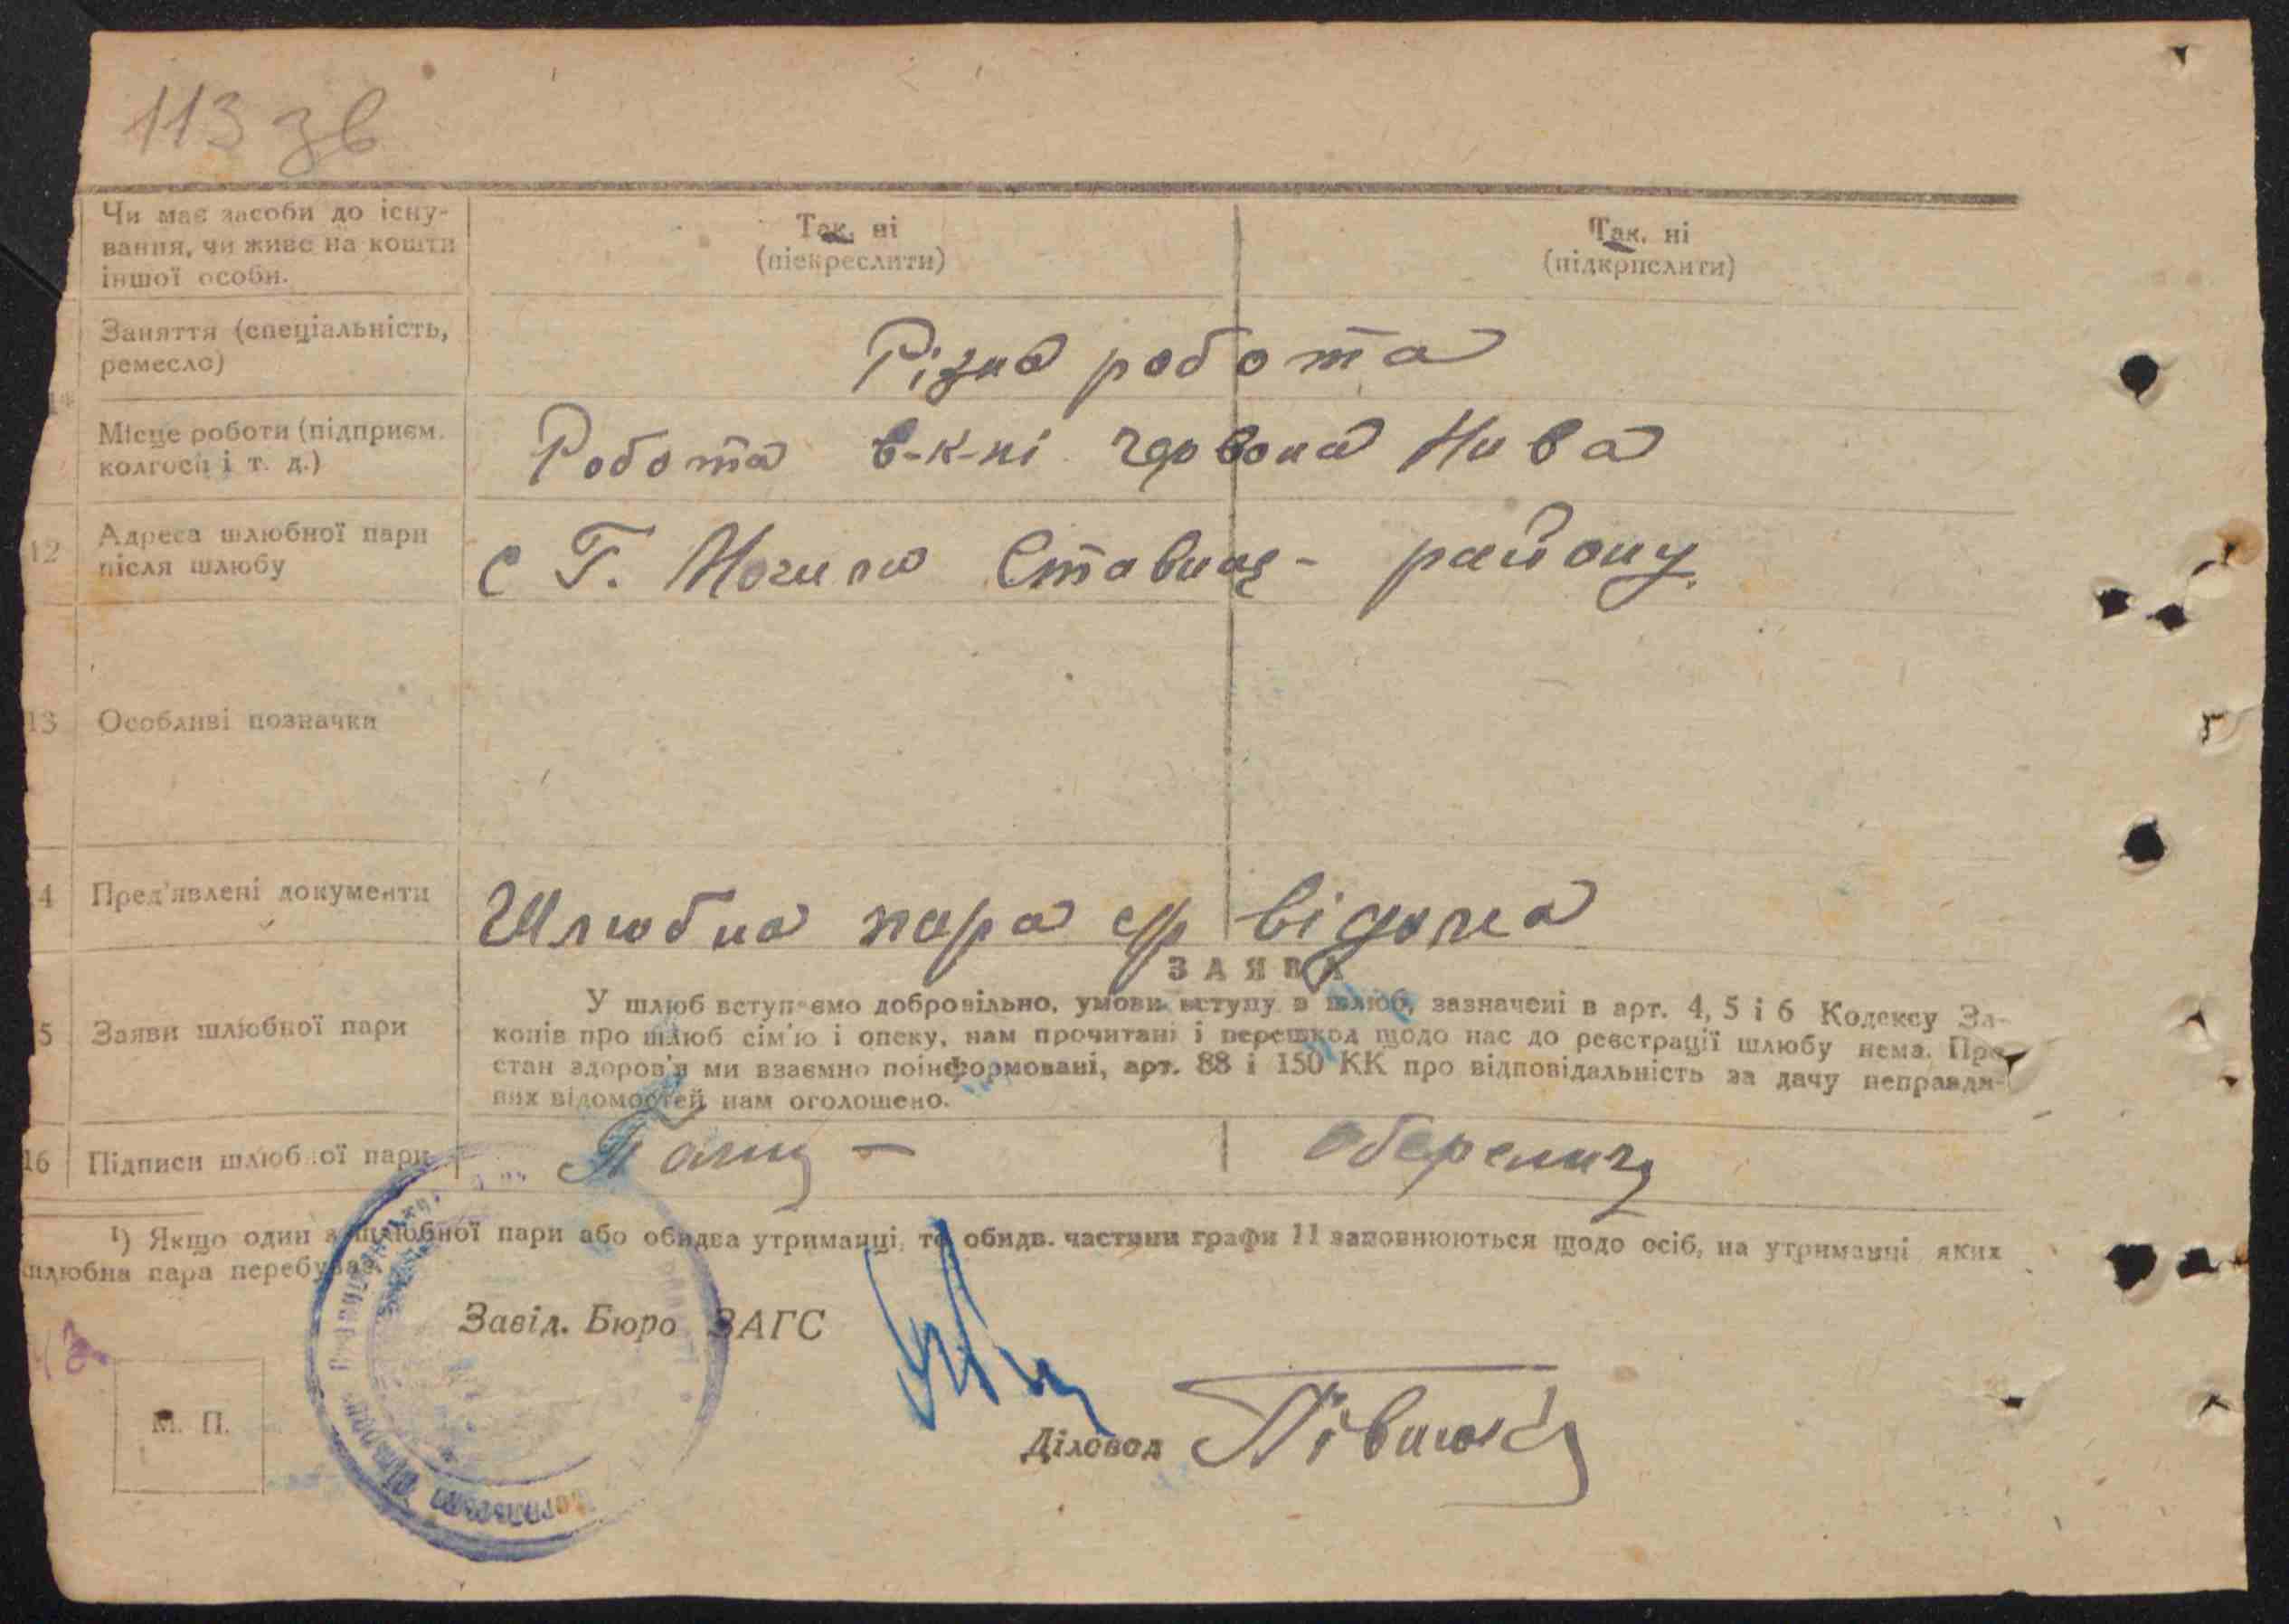 113 зв
Чи має засоби до існу-
вання, чи живе на кошти
іншої особи.
Так, ні
(піекреслити)
Так, ні
(підкрпслити)
Заняття (спеціальність,
ремесло)
Різна робота
Місце роботи (підприєм.
колгосп і т. д.)
Робота в-к-пі Червона Нива
12 Адреса шлюбної пари
після шлюбу
с Г. Могила Ставищ- району
13 Особливі позначки
4 Пред'явлені документи
Шлюбна пара
ЗАЯВА
5 Заяви шлюбної пари
У шлюб вступаємо добровільно, умови вступу в шлюб, зазначені в арт. 4, 5 і 6 Кодексу За-
конів про шлюб сім'ю і опеку, нам прочитані і перешкод щодо нас до реєстрації шлюбу нема. Про
стан здоров'я ми взаємно поінформовані, арт. 88 і 150 КК про відповідальність за дачу неправди-
вих відомостей нам оголошено.
16 Підписи шлюбної пари
¹) Якщо один з шлюбної пари або обидва утриманці, то обидв. частини графи 11 заповнюються щодо осіб, на утриманні яких
шлюбна пара перебуває
Завід. Бюро ЗАГС
М. П.
Діловод